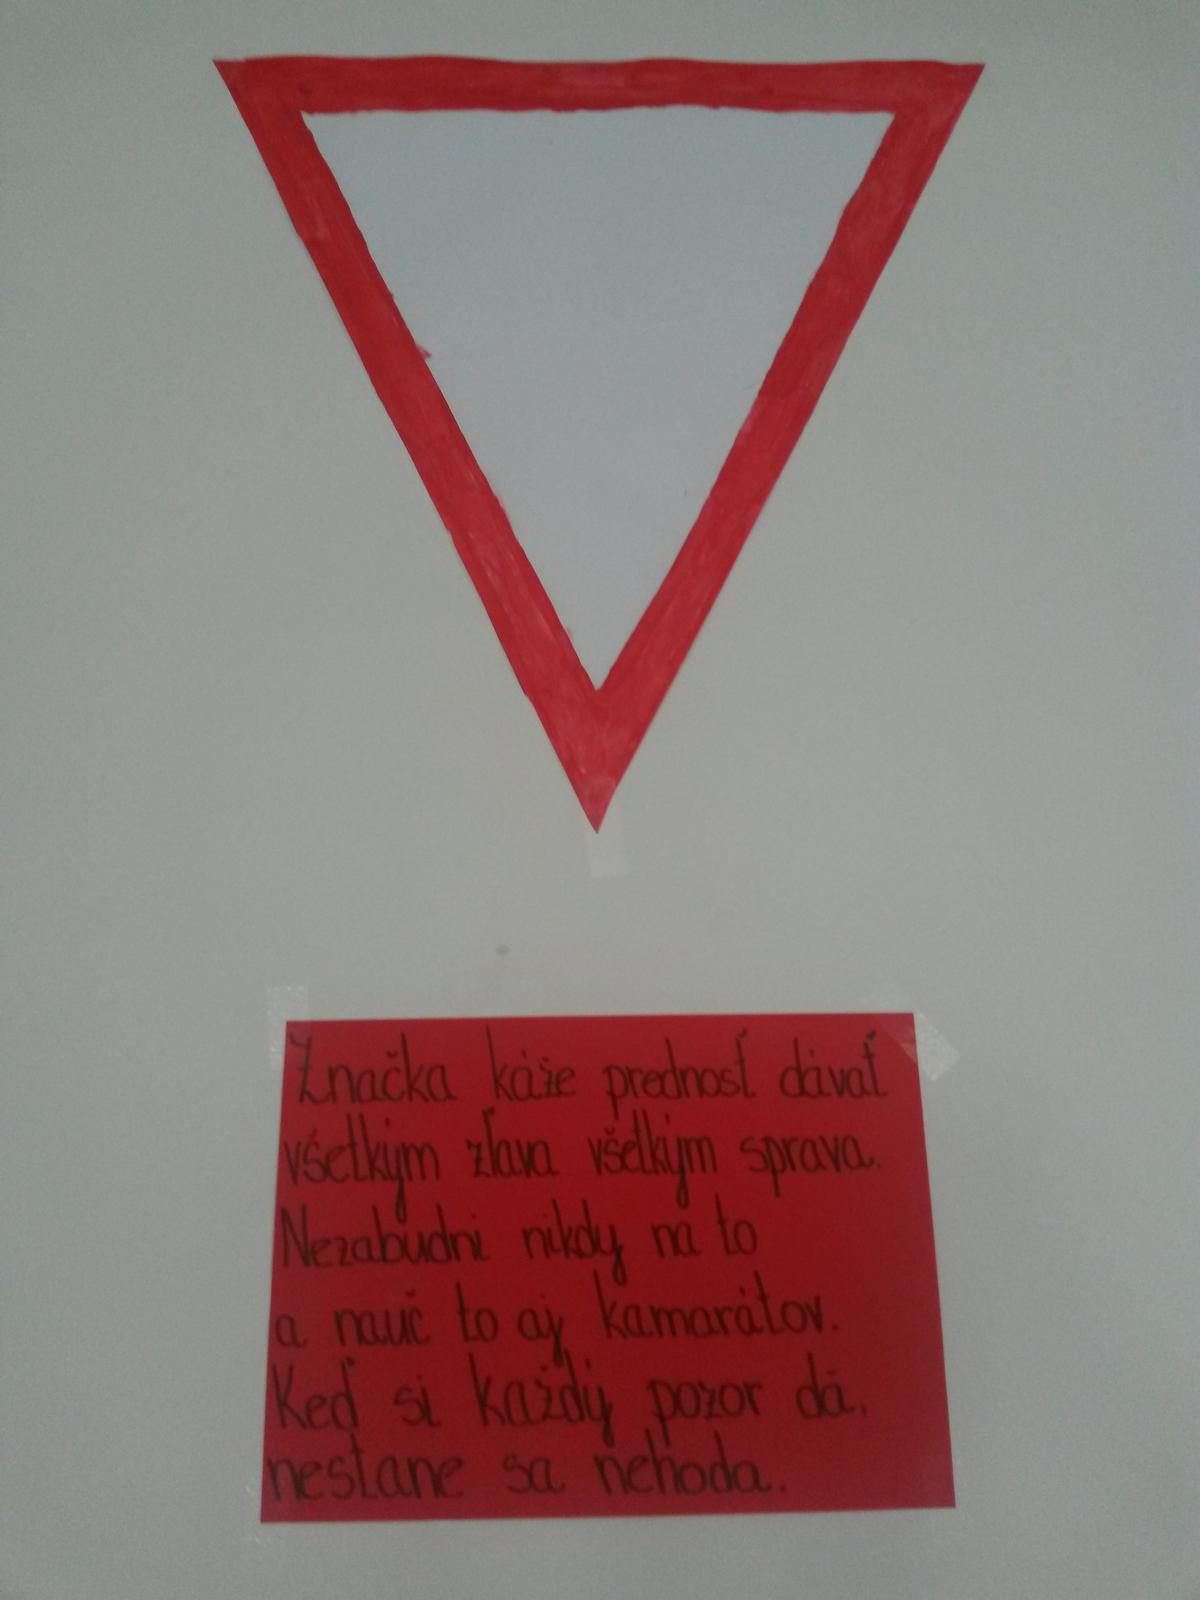 Značka káže prednosť dávať
všetkým zľava všetkým sprava.
Nezabudni nikdy na to
a nauč to aj kamarátov.
Keď si každý pozor dá,
nestane sa nehoda.